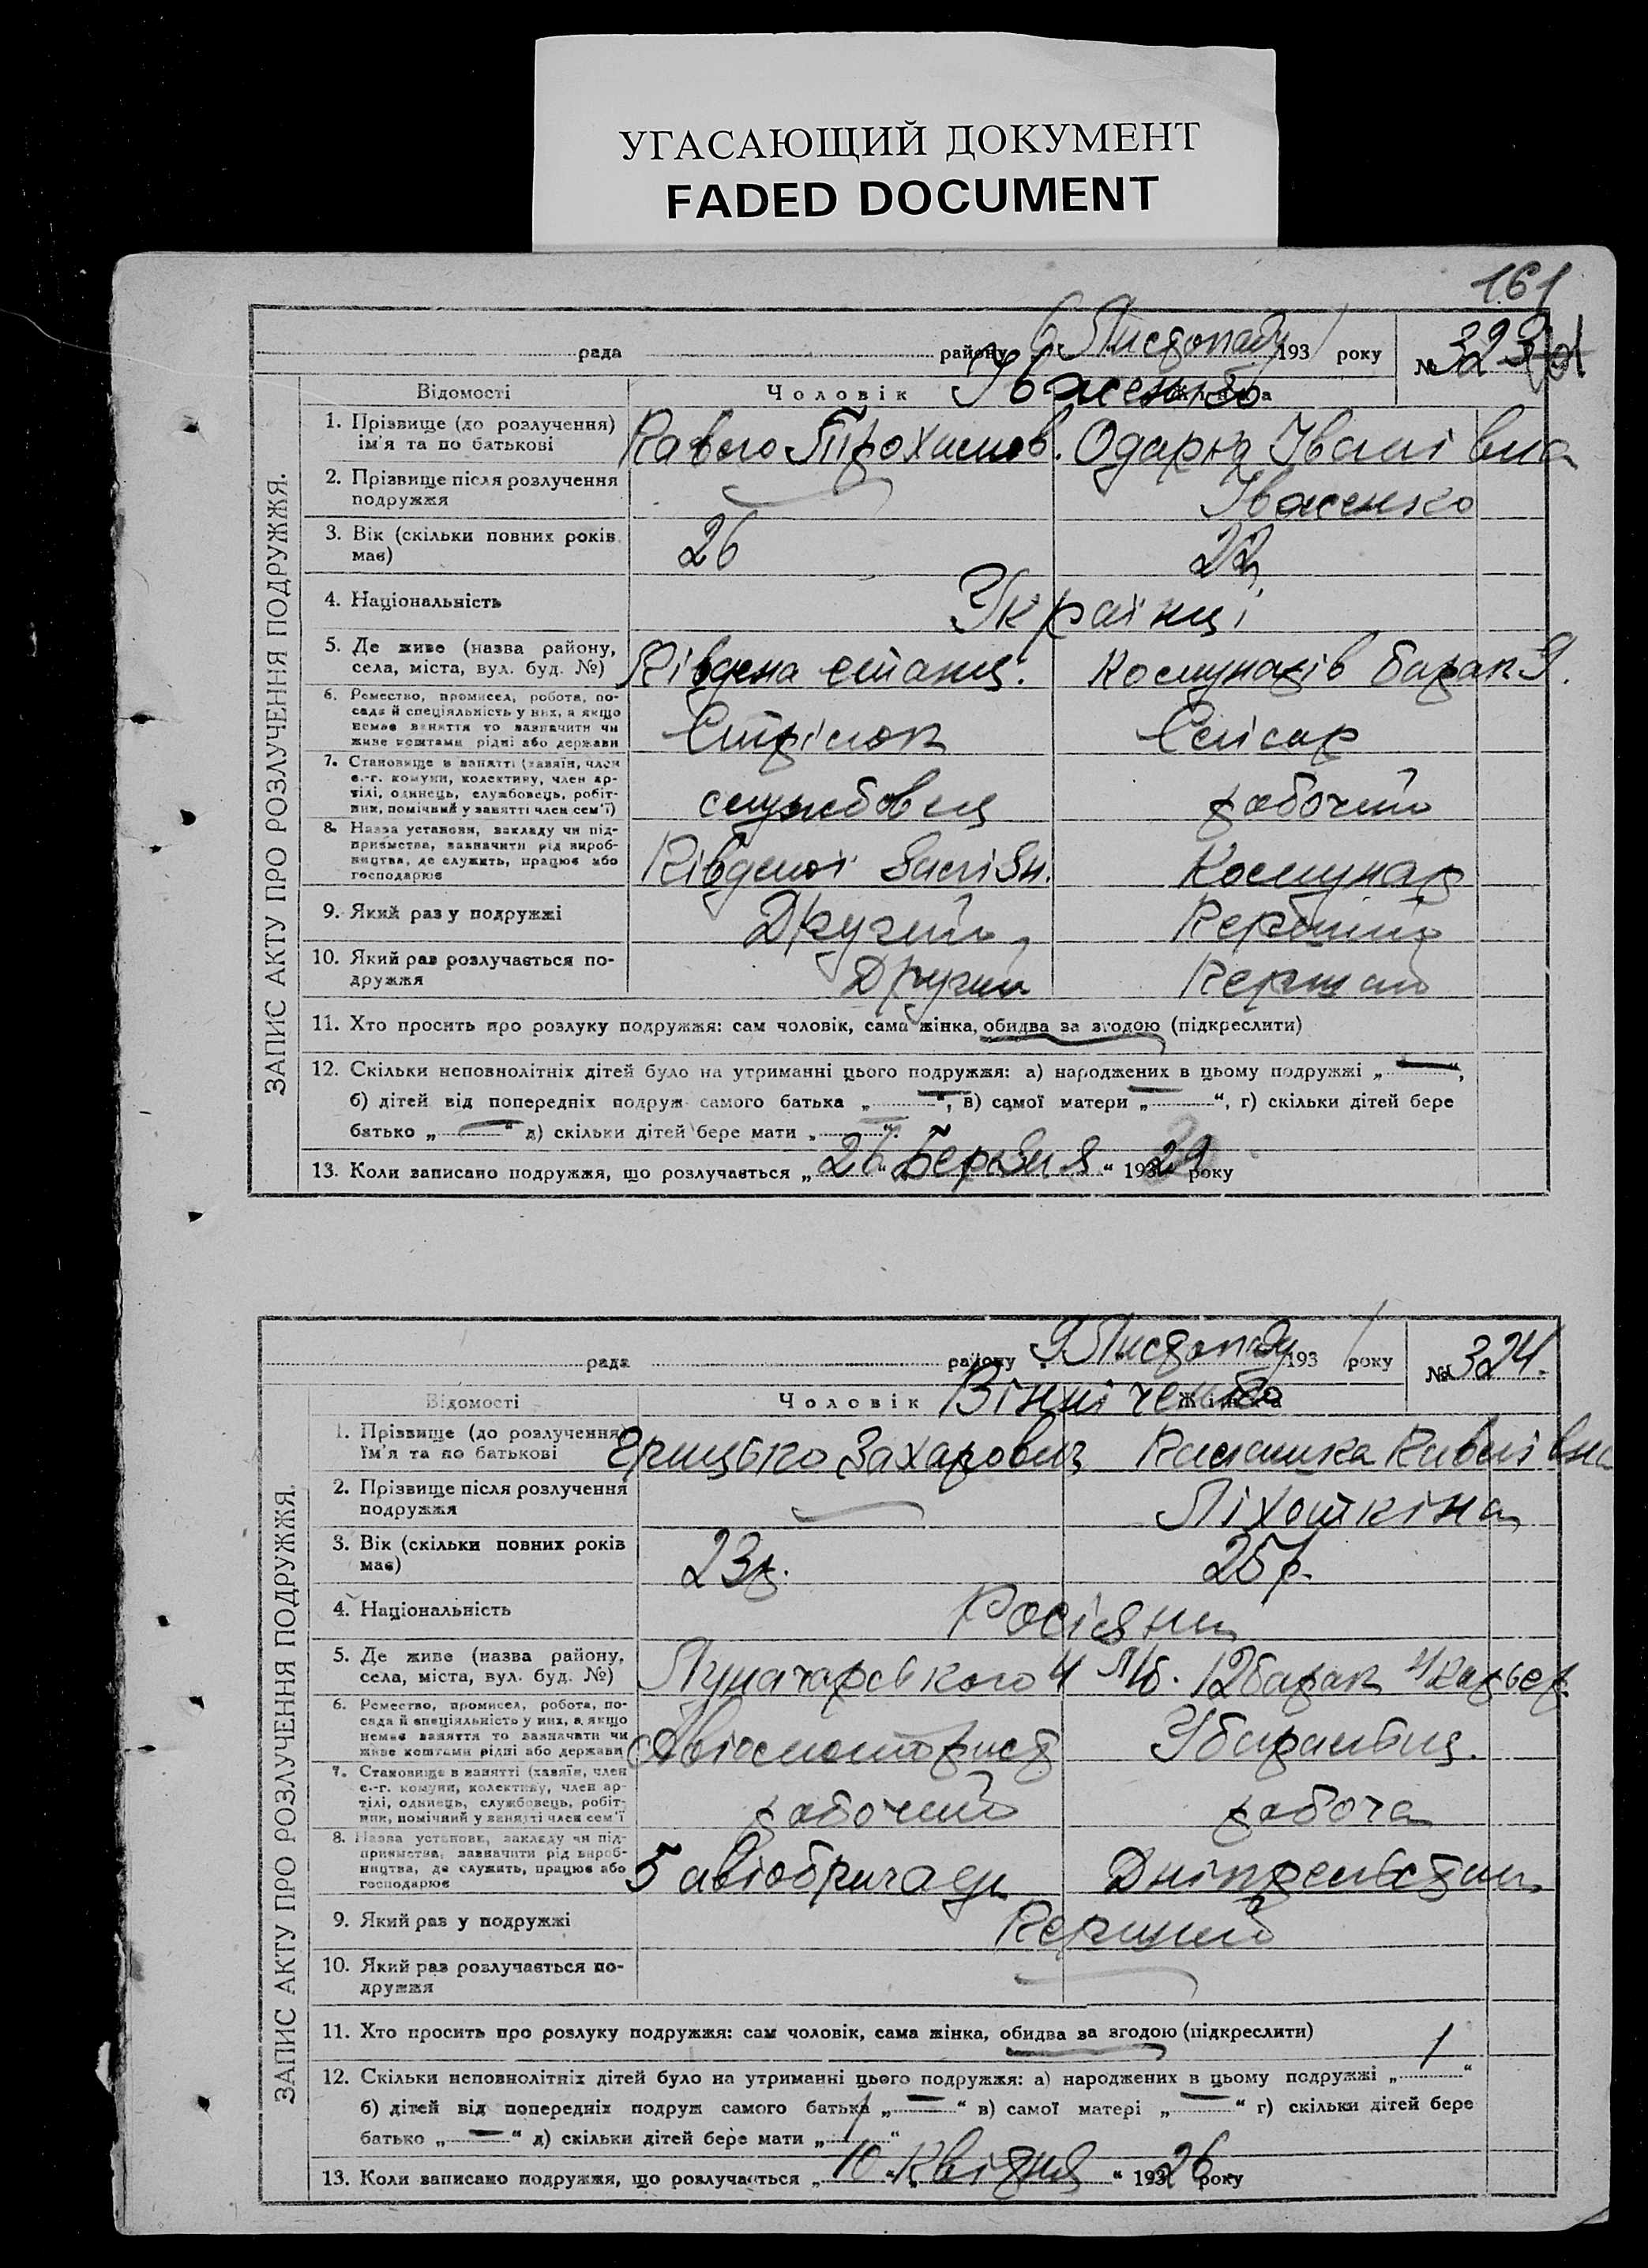 УГАСАЮЩИЙ ДОКУМЕНТ
FADED DOCUMENT
161
рада району 6 Листопаду 1931 року № 323
Відомості Чоловік Жінка
Івженко
ЗАПИС АКТУ ПРО РОЗЛУЧЕННЯ ПОДРУЖЖЯ.
1. Прізвище (до розлучення) ім'я та по батькові
Павло Трохимов. Одарка Іванівна
2. Прізвище після розлучення подружжя
Івженко
3. Вік (скільки повних років має)
26 22
4. Національність
Українці
5. Де живе (назва району, села, міста, вул. буд. №)
Південа станц. Комунарів барак 9.
6. Ремество, промисел, робота, посада й спеціяльність у них, а якщо немає заняття то зазначити чи живе коштами рідні або держави
Стрілок Слісар
7. Становище в занятті (хазяїн, член с.-г. комуни, колективу, член артілі, одинець, службовець, робітник, помічний у занятті член сем'ї)
службовец рабочий
8. Назва установи, закладу чи підприємства, зазначити рід виробництва, де служить, працює або господарює
Південої Залізн. Комунар
9. Який раз у подружжі
Другий Первший
10. Який раз розлучається подружжя
Другий Перший
11. Хто просить про розлуку подружжя: сам чоловік, сама жінка, обидва за згодою (підкреслити)
12. Скільки неповнолітніх дітей було на утриманні цього подружжя: а) народжених в цьому подружжі „ — “,
б) дітей від попередніх подруж самого батька „ — “, в) самої матери „ — “, г) скільки дітей бере
батько „ — “ д) скільки дітей бере мати „ — “.
13. Коли записано подружжя, що розлучається „26“ Березня “ 1929 року
рада району 9 Листопаду 1931 року № 324.
Відомості Чоловік Жінка
Вінніченко
ЗАПИС АКТУ ПРО РОЗЛУЧЕННЯ ПОДРУЖЖЯ.
1. Прізвище (до розлучення) їм'я та по батькові
Грицько Захарович Павлівна
2. Прізвище після розлучення подружжя
Ліхошкіна
3. Вік (скільки повних років має)
23р. 25р.
4. Національність
Росіяни
5. Де живе (назва району, села, міста, вул. буд. №)
Луначарського 4 12барак 4/карьер
6. Ремество, промисел, робота, посада й спеціяльність у них, а якщо немає заняття то зазначити чи живе коштами рідні або держави
Авіомоторист Убиральщ.
7. Становище в занятті (хазяїн, член с.-г. комуни, колективу, член артілі, одинець, службовець, робітник, помічний у занятті член сем'ї
рабочий рабоча
8. Назва установи, закладу чи підприємства, зазначити рід виробництва, де служить, працює або господарює
5 авіобригади
9. Який раз у подружжі
Перший
10. Який раз розлучається подружжя
11. Хто просить про розлуку подружжя: сам чоловік, сама жінка, обидва за згодою (підкреслити)
12. Скільки неповнолітніх дітей було на утриманні цього подружжя: а) народжених в цьому подружжі „ 1 “
б) дітей від попередніх подруж самого батька „ — “ в) самої матері „ — “ г) скільки дітей бере
батько „ — “ д) скільки дітей бере мати „ 1 “
13. Коли записано подружжя, що розлучається „ 10 „ Квітня “ 1926 року